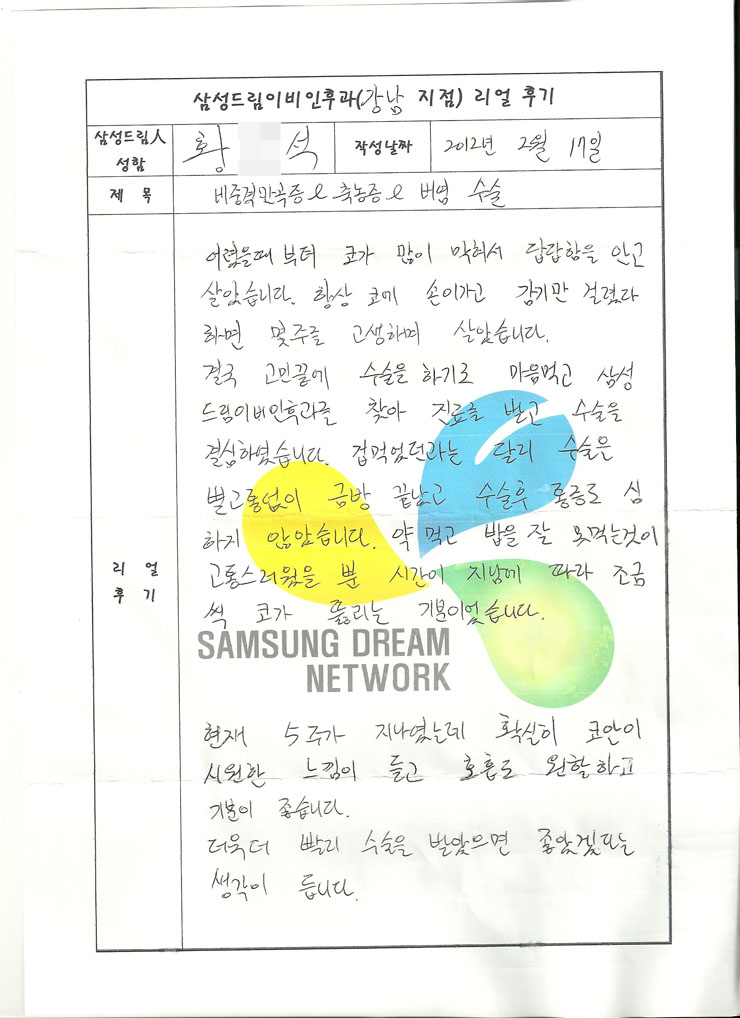 삼성드림이비인후과(강남 지점) 리얼 후기
삼성드림人 성함 황 석 작성날짜 2012년 2월 17일
제 목 비중격만곡증 & 축농증 & 비염 수술
리 얼
후 기
어렸을때 부터 코가 많이 막혀서 답답함을 안고
살았습니다. 항상 코에 손이가고 감기만 걸렸다
하면 몇주를 고생하며 살았습니다.
결국 고민끝에 수술을 하기로 마음먹고 삼성
드림이비인후과를 찾아 진료를 받고 수술을
결심하였습니다. 겁먹었던라는 달리 수술은
별고통없이 금방 끝났고 수술후 통증도 심
하지 않았습니다. 약 먹고 밥을 잘 못먹는것이
고통스러웠을 뿐 시간이 지남에 따라 조금
씩 코가 뚫리는 기분이었습니다.
SAMSUNG DREAM
NETWORK
현재 5주가 지나였는데 확실히 코안이
시원한 느낌이 들고 호흡도 원할하고
기분이 좋습니다.
더욱더 빨리 수술을 받았으면 좋았겠다는
생각이 듭니다.